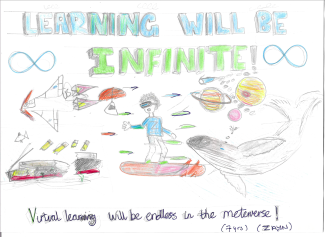 LEARNING WILL BE
INFINITE!
Virtual learning will be endless in the metaverse!
(7 yrs)